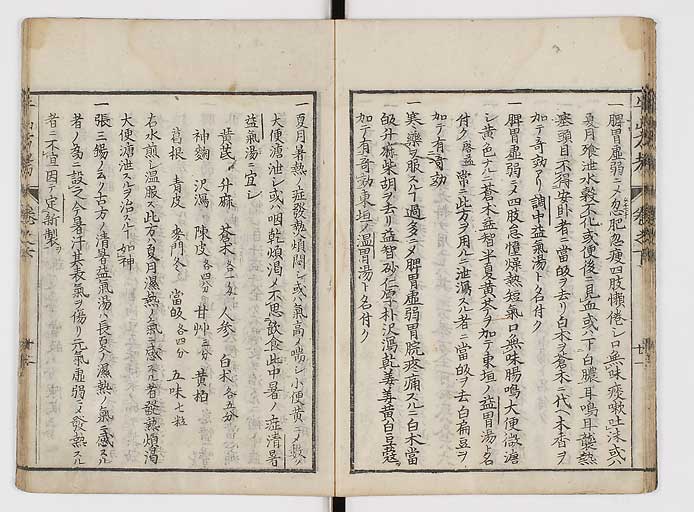 一脾胃虚弱ニメ忽肥忽痩四肢懶倦シ口無味痰嗽吐沫或ハ
夏月飧泄水穀不化或便後ニ見血或ハ下白膿耳鳴耳聾熱
壅頭目不得安臥者ニ當皈ヲ去リ白朮ヲ蒼朮ニ代ヘ木香ヲ
加テ奇効アリ調中益氣湯ト名付ク
一脾胃虚弱ニメ四肢怠惰燥熱短氣口無味腸鳴大便微溏
シ黄色ナルニ蒼朮益智半夏黄芩ヲ加テ東垣ノ益胃湯ト名
付ク 常ニ此方ヲ用ルニ泄瀉スル者ニ當皈ヲ去白扁豆ヲ
加テ有奇効
一寒藥ヲ服スルヿ過多ニメ脾胃虚弱胃脘疼痛スルニ白朮當
皈升麻柴胡ヲ去リ益智砂仁厚朴沢瀉乾姜姜黄白豆蔲ヲ
加テ有奇効東垣ノ温胃湯ト名付ク
一夏月暑熱ノ症發熱煩悶シ或ハ氣高ノ喘シ小便黄ニメ數ハ
大便溏泄シ或ハ咽乾煩渇メ不思飲食此中暑ノ症清暑
益氣湯ニ宜シ
黄芪 升麻 蒼朮各一匁 人参 白朮各五分
神麴 沢瀉 陳皮各四分 甘艸三分 黄柏
葛根 青皮 麥門冬 當皈各四分 五味七粒
右水煎シ温服ス此方ハ夏月濕熱ノ氣ニ感スル者發熱煩渇
大便溏泄スルヲ治スルヿ如神
一張三錫云ク古方ノ清暑益氣湯ハ長夏ノ濕熱ノ氣ニ感スル
者ノ為ニ設ク今暑汗其表氣ヲ傷リ元氣虚弱ニメ發熱スル
者ニ不宜因テ定新製ヲ